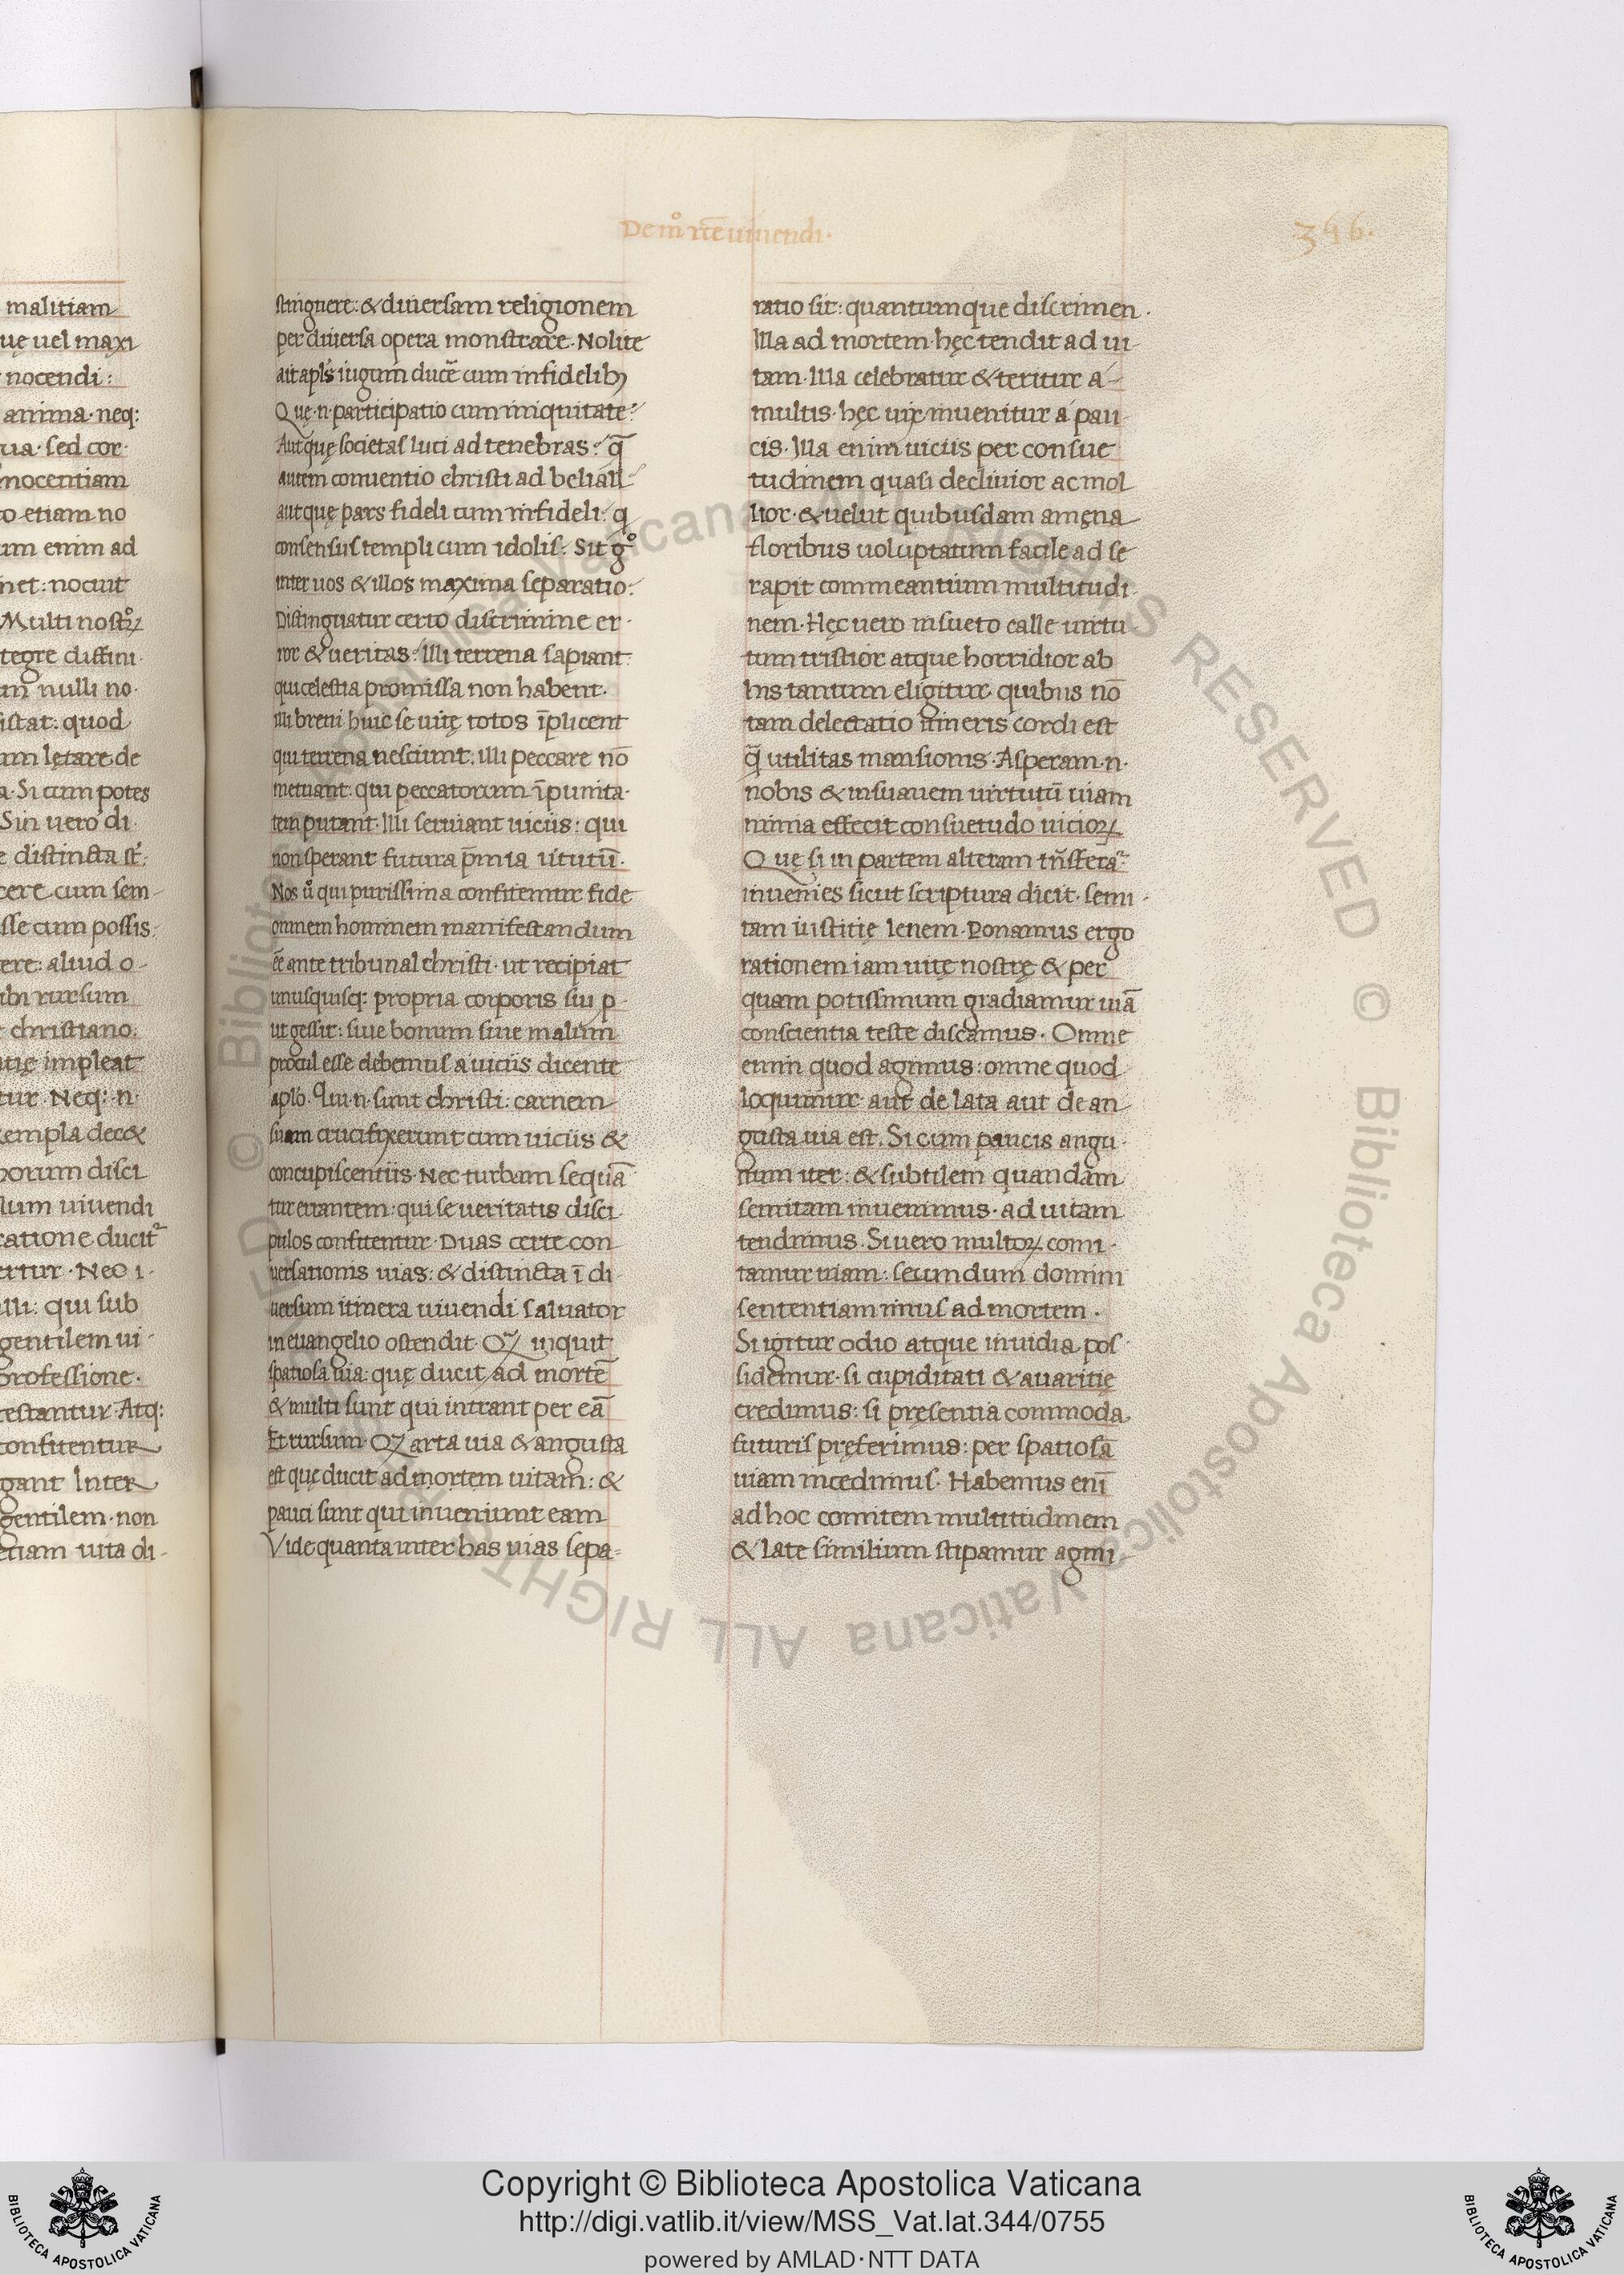 De mº rcte uiuendi·
396·
malitiam
uę uel maxi
nocendi:
anima· neq:
ua· sed cor·
nocentiam
o etiam no
um enim ad
net: nocuit
Multi nostoꝝ
tegre diffini·
nulli no·
istat: quod
um lętare de
a· Si cum potes
Sin uero di·
e distincta st̄:
cere cum sem-
sse cum possis:
ere: aliud o-
ibi rursum
christiano:
tię impleat
tur· Neq: n·
xempla dec&
orum disci
lum uiuendi
ratione ducit᷑
ertur· Nec i·
illi: qui sub
gentilem ui·
professione·
testantur· Atq:
confitentur
gant Inter
gentilem· non
etiam uita di-
stinguere: & diuersam religionem
per diuersa opera monstrare· Nolite
ait apl's iugum ducē cum infidelibꝫ
Quę·n·participatio cum iniquitate?
Aut quę societas luci ad tenebras? q̄
autem conuentio christi ad beliall?
aut quę pars fideli cum infideli: q̄
consensus templi cum idolis: Sit gº
inter uos & illos maxima separatio:
Distinguatur certo discrimine er·
ror & ueritas: Illi terrena sapiant:
qui celestia promissa non habent·
illi breui huic se uitę totos īplicent
qui terrena nesciunt: illi peccare nō
metuant: qui peccatorum īpunita·
tem putant· Illi seruiant uiciis: qui
non sperant futura p̄mia uirtutū·
Nos uº qui purissima confitemur fide
omnem hominem manifestandum
ēē ante tribunal christi· ut recipiat
unusquisq: propria corporis siu p·
ut gessit: siue bonum siue malum
procul esse debemus a uiciis dicente
aplo· Qui·n·sunt christi: carnem
suam crucifixerunt cum uiciis &
concupiscentiis· Nec turbam sequā
tur errantem: qui se ueritatis disci·
pulos confitentur· Duas certe con
uersationis uias: & distincta ī di·
uersum itinera uiuendi saluator
in euangelio ostendit· Qꝫ inquit
spatiosa uia: quę ducit ad mortē
& multi sunt qui intrant per eā
Et rursum· Qꝫ arta uia & angusta
est quę ducit ad mortem uitam: &
pauci sunt qui inueniunt eam
Vide quanta inter has uias sepa-
ratio sit: quantumque discrimen·
Illa ad mortem· hęc tendit ad ui
tam· Illa celebratur & teritur a-
multis· hęc uix inuenitur a pau
cis· Illa enim uiciis per consue
tudinem quasi decliuior ac mol
lior· & uelut quibusdam amęna
floribus uoluptatum facile ad se
rapit commeantium multitudi·
nem· Hęc uero insueto calle uirtu
tum tristior atque horridior ab
his tantum eligitur· quibus nō
tam delectatio itineris cordi est
q̄ utilitas mansionis· Asperam·n·
nobis & insuauem uirtutū uiam
nimia effecit consuetudo uicioꝝ
Quę si in partem alteram trn̄sferat᷑
inuenies sicut scriptura dicit· semi·
tam iustitię lenem· Ponamus ergo
rationem iam uitę nostrę & per
quam potissimum gradiamur uiā
conscientia teste discamus· Omne
enim quod agimus: omne quod
loquimur· aut de lata aut de an
gusta uia est· Si cum paucis angu·
stum iter: & subtilem quandam
semitam inuenimus· ad uitam
tendimus· Si uero multoꝝ comi·
tamur uiam: secundum domini
sententiam imus ad mortem·
Si igitur odio atque inuidia pos·
sidemur· si cupiditati & auaritię
credimus: si pręsentia commoda
futuris pręferimus: per spatiosā
uiam incedimus· Habemus enī
ad hoc comitem multitudinem
& late similium stipamur agmi-
© Biblioteca Apostolica Vaticana ALL RIGHTS RESERVED © Biblioteca Apostolica Vaticana ALL RIGHTS RESERVED
Copyright © Biblioteca Apostolica Vaticana
http://digi.vatlib.it/view/MSS_Vat.lat.344/0755
powered by AMLAD·NTT DATA
BIBLIOTECA APOSTOLICA VATICANA
BIBLIOTECA APOSTOLICA VATICANA